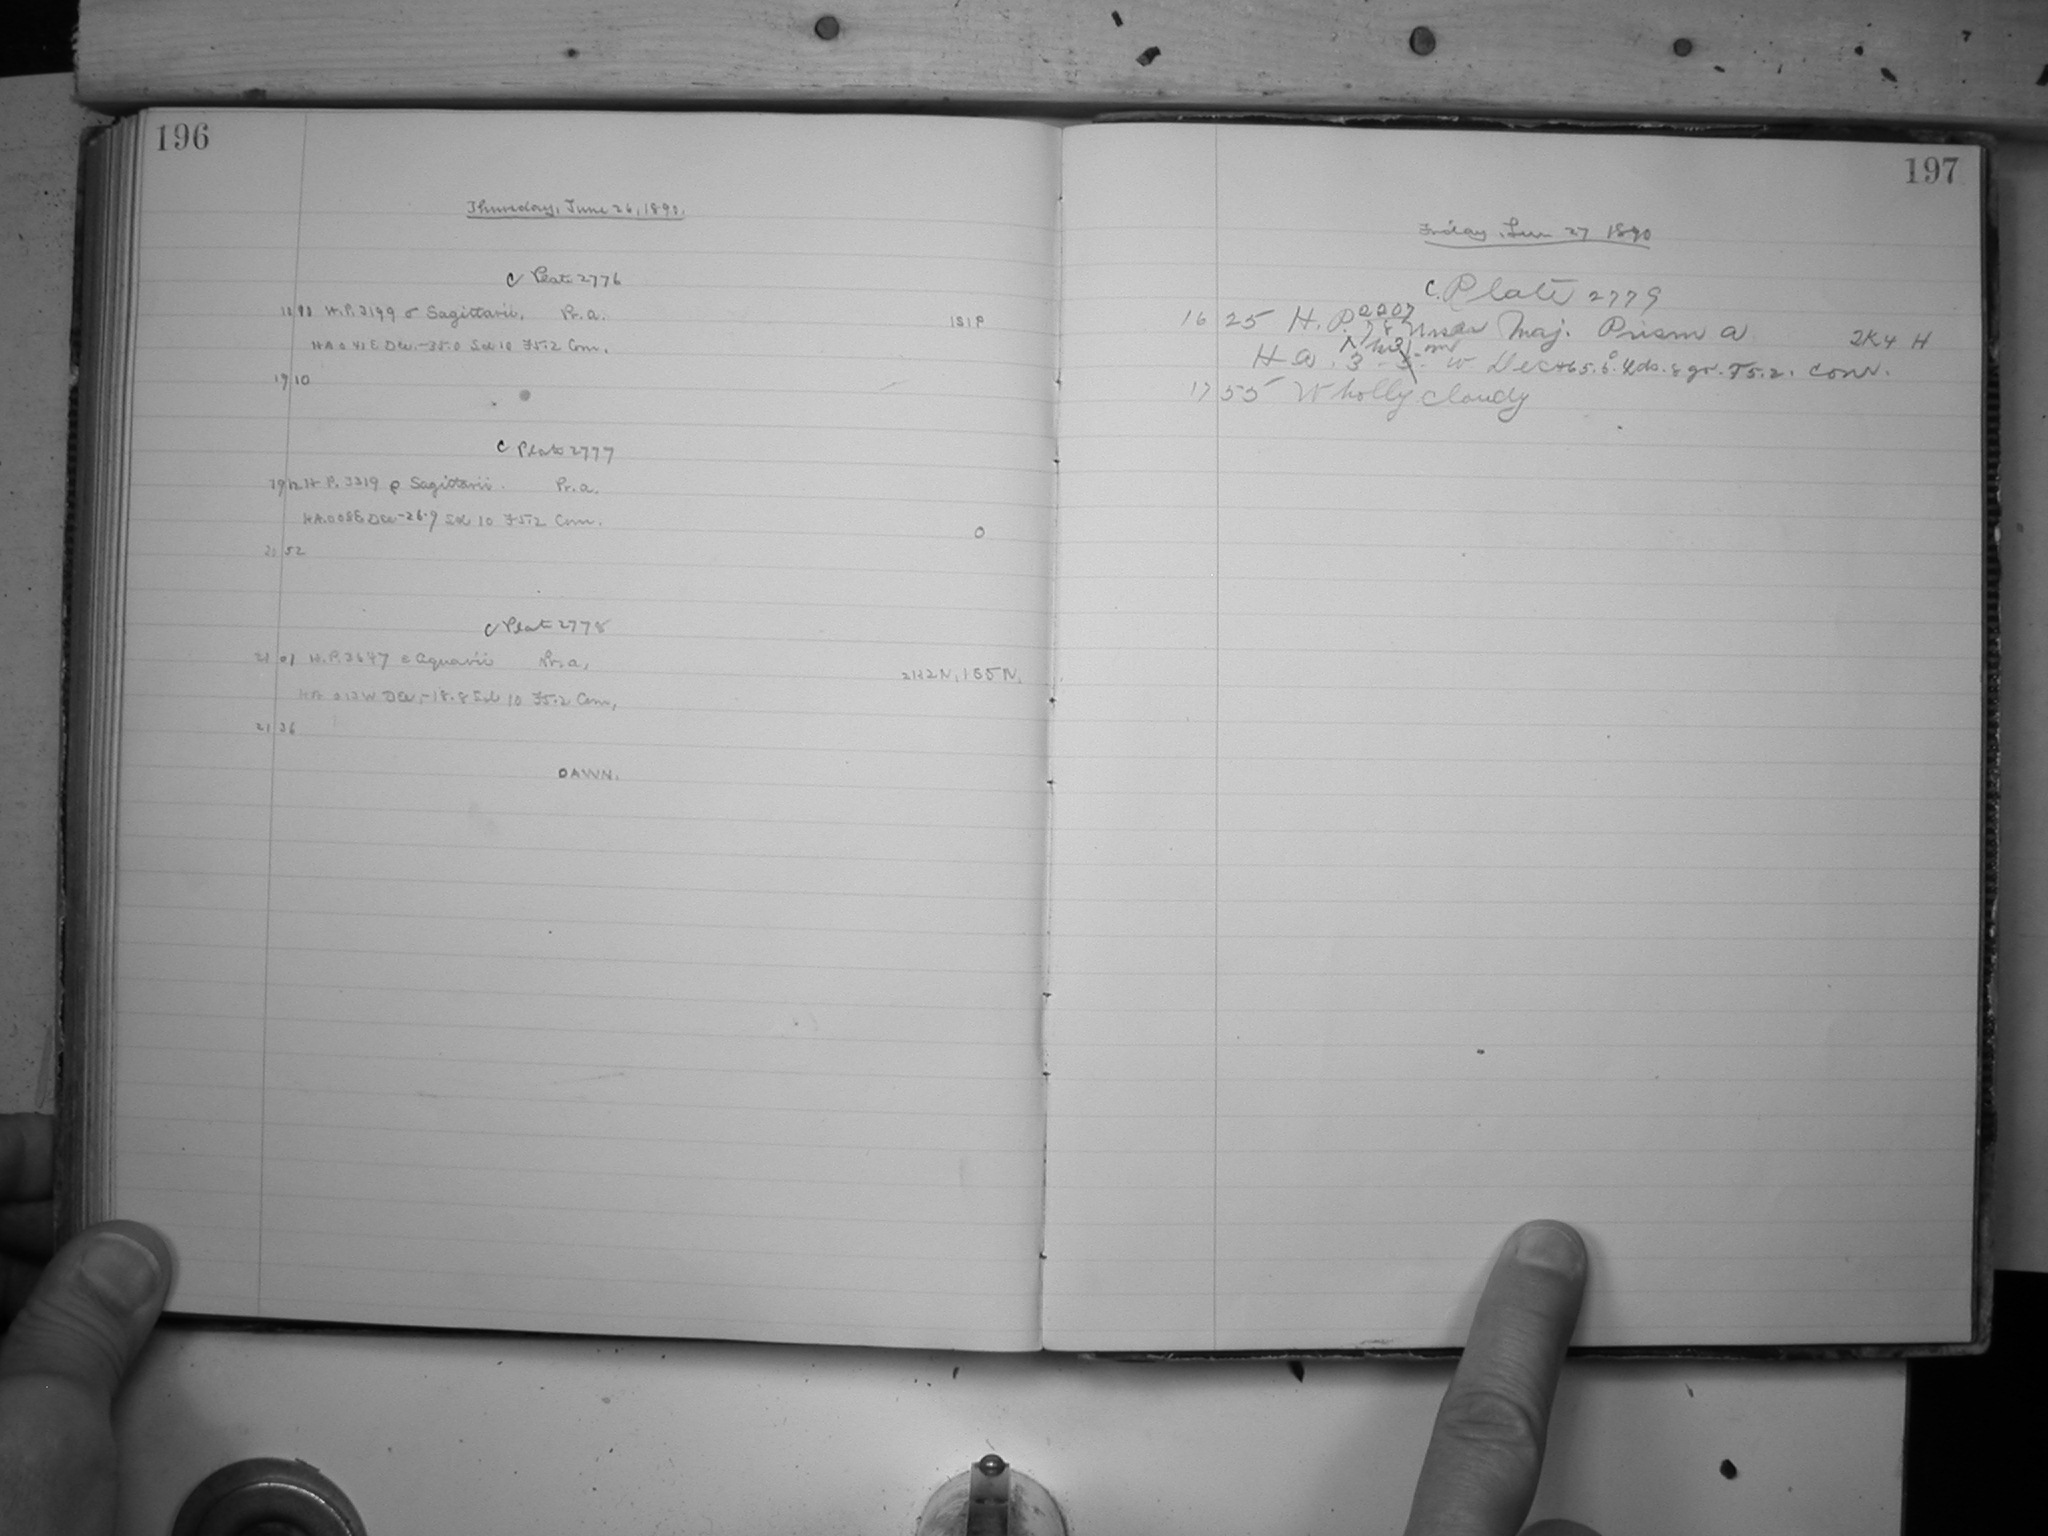 196
Thursday, June 26, 1890.
C Plate 2776
H.P. 3199 σ Sagittarii, Pr. a.
151P
HA 0 41 E Dec. -35.0 Sid 10 F5.2 Com.
19 10
C Plate 2777
19 12 H.P. 3319 ρ Sagittarii. Pr. a.
HA 0 08 E Dec -26.9 Sid 10 F5.2 Com.
0
20 52
C Plate 2778
21 01 H.P. 3647 c Aquarii Pr. a,
2H2N, 155N.
HA 0 13 W Dec, -18.8 Sid 10 F5.2 Com,
21 36
DAWN.
197
Friday, Jun 27 1890
C. Plate 2779
16 25 H. P. 2207
78 Ursae Maj. Prism a 2K4 H
H a. 3 W Dec +65.6 F5.2. corr.
17 55 Wholly Cloudy